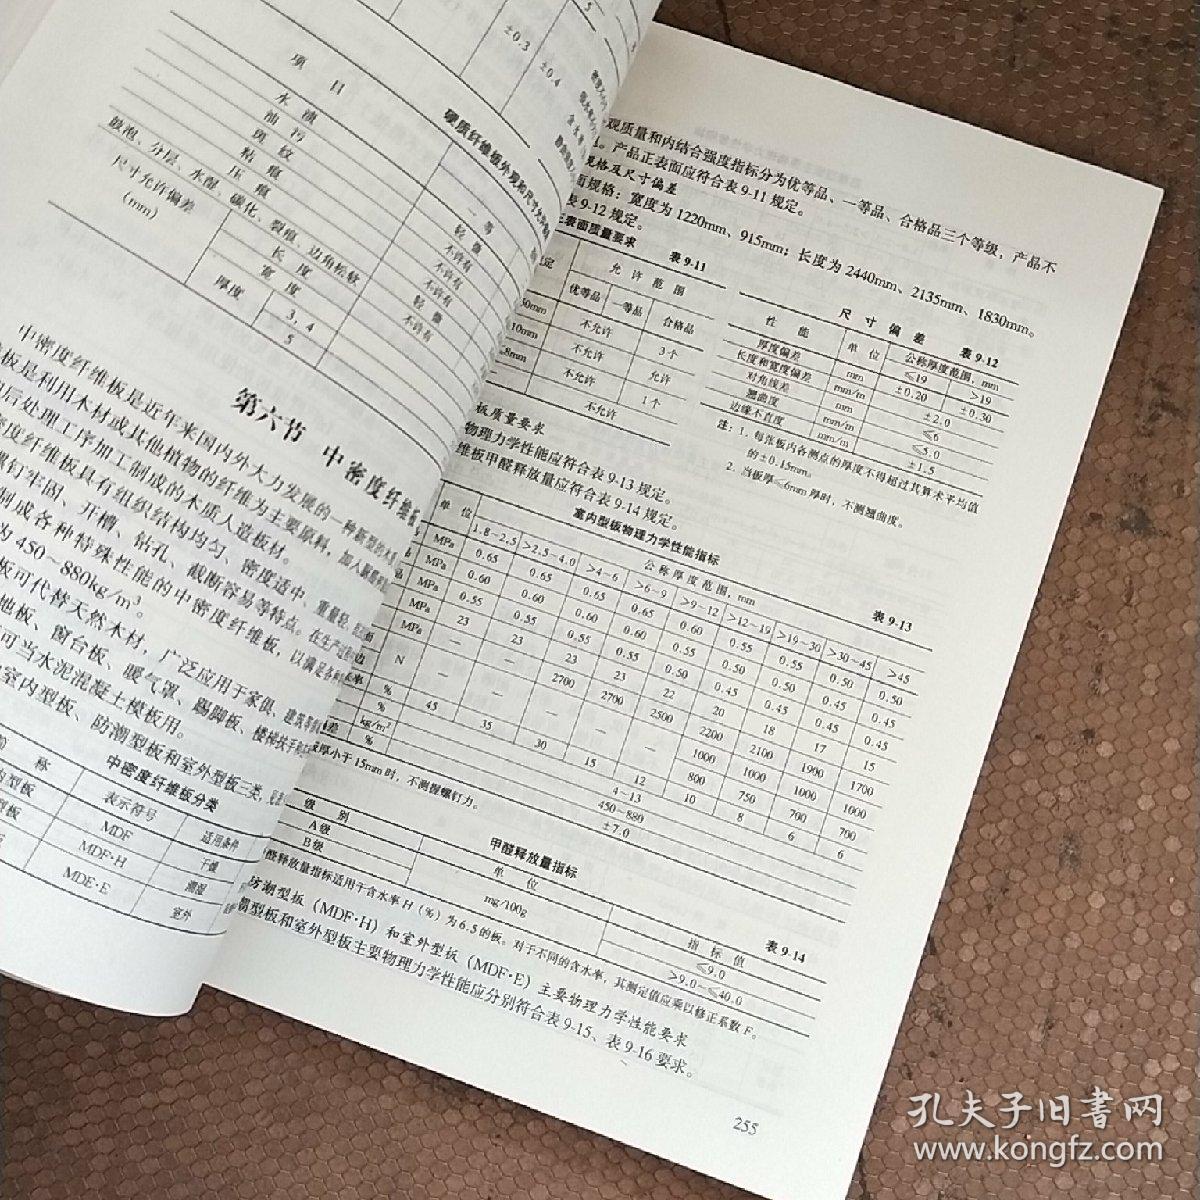 ±0.3
±0.4
项 目
硬质纤维板外观和尺寸允许偏
水 渍
油 污
斑 纹
粘 痕
压 痕
鼓泡、分层、水湿、碳化、裂痕、边角松软
尺寸允许偏差
(mm)
长 度
宽 度
厚度
3, 4
5
一 等
轻 微
不许有
不许有
不许有
轻 微
不许有
第六节 中密度纤维板
中密度纤维板是近年来国内外大力发展的一种新型的木质
板是利用木材或其他植物的纤维为主要原料，加入
后处理工序加工制成的木质人造板材。
密度纤维板具有组织结构均匀、密度适中、重量轻、
钉牢固、开槽、钻孔、截断容易等特点。在生产过程
制成各种特殊性能的中密度纤维板，以满足各
为 450～880kg/m³。
板可代替天然木材，广泛应用于家俱、建筑等
地板、窗台板、暖气罩、踢脚板、楼梯扶手
可当水泥混凝土模板用。
室内型板、防潮型板和室外型板三类，
中密度纤维板分类
称 表示符号 适用条件
内型板 MDF 干燥
型板 MDF·H 潮湿
MDF·E 室外
观质量和内结合强度指标分为优等品、一等品、合格品三个等级，产品不
。产品正表面应符合表 9-11 规定。
规格及尺寸偏差
面规格：宽度为 1220mm、915mm；长度为 2440mm、2135mm、1830mm。
表 9-12 规定。
正表面质量要求 表 9-11
定 允 许 范 围
优等品 一等品 合格品
50mm 不允许 3 个
10mm 不允许 允许
.8mm 不允许 1 个
不允许
尺 寸 偏 差 表 9-12
性 能 单 位 公称厚度范围，mm
≤19 >19
厚度偏差 mm ±0.20 ±0.30
长度和宽度偏差 mm/m ±2.0
对角线差 mm ≤6
翘曲度 mm/m ≤5.0
边缘不直度 mm/m ±1.5
注：1. 每张板内各测点的厚度不得超过其算术平均值
的±0.15mm。
2. 当板厚≤6mm 厚时，不测翘曲度。
板质量要求
物理力学性能应符合表 9-13 规定。
维板甲醛释放量应符合表 9-14 规定。
室内型板物理力学性能指标 表 9-13
单 位 公 称 厚 度 范 围，mm
1.8~2.5 >2.5~4.0 >4~6 >6~9 >9~12 >12~19 >19~30 >30~45 >45
MPa 0.65 0.65 0.65 0.65 0.60 0.55 0.55 0.50 0.50
MPa 0.60 0.60 0.60 0.60 0.55 0.50 0.50 0.45 0.45
MPa 0.55 0.55 0.55 0.55 0.50 0.45 0.45 0.45 0.45
MPa 23 23 23 23 22 20 18 17 15
— — 2700 2700 2500 2200 2100 1900 1700
N — — — — — 1000 1000 1000 1000
— — — — — 800 750 700 700
% 45 35 30 15 12 10 8 6 6
% 4~13
kg/m³ 450~880
% ±7.0
板厚小于 15mm 时，不测握螺钉力。
甲醛释放量指标 表 9-14
级 别 单 位 指 标 值
A 级 mg/100g ≤9.0
B 级 >9.0~≤40.0
醛释放量指标适用于含水率 H（%）为 6.5 的板。对于不同的含水率，其测定值应乘以修正系数 F。
防潮型板（MDF·H）和室外型板（MDF·E）主要物理力学性能要求
潮型板和室外型板主要物理力学性能应分别符合表 9-15、表 9-16 要求。
255
孔夫子旧书网
www.kongfz.com